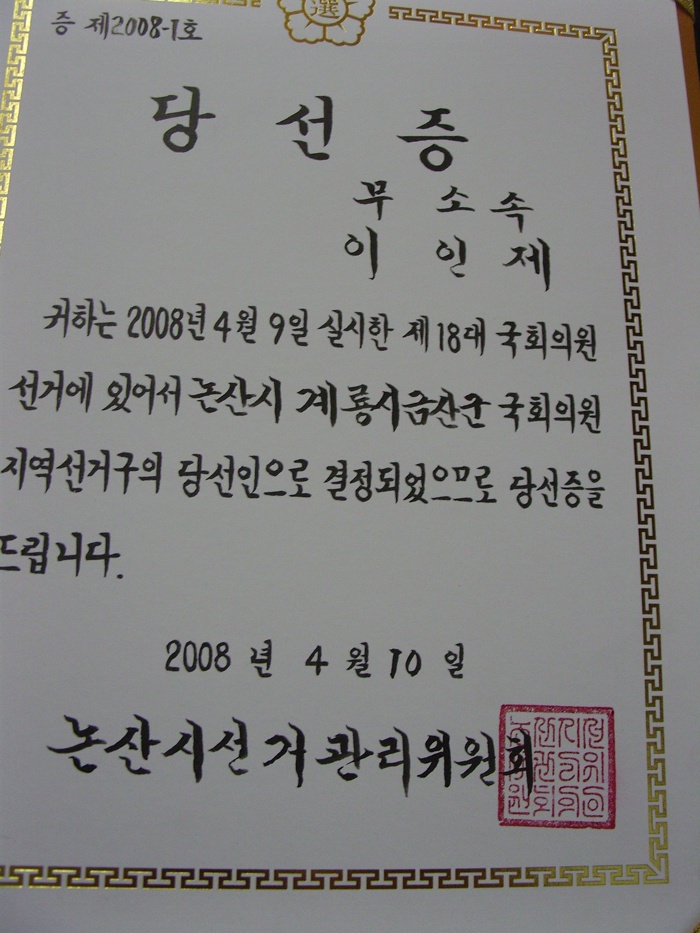 증 제2008-1호
選
당 선 증
무 소 속
이 인 제
귀하는 2008년 4월 9일 실시한 제18대 국회의원
선거에 있어서 논산시 계룡시금산군 국회의원
지역선거구의 당선인으로 결정되었으므로 당선증을
드립니다.
2008 년 4 월 10 일
논산시선거관리위원회